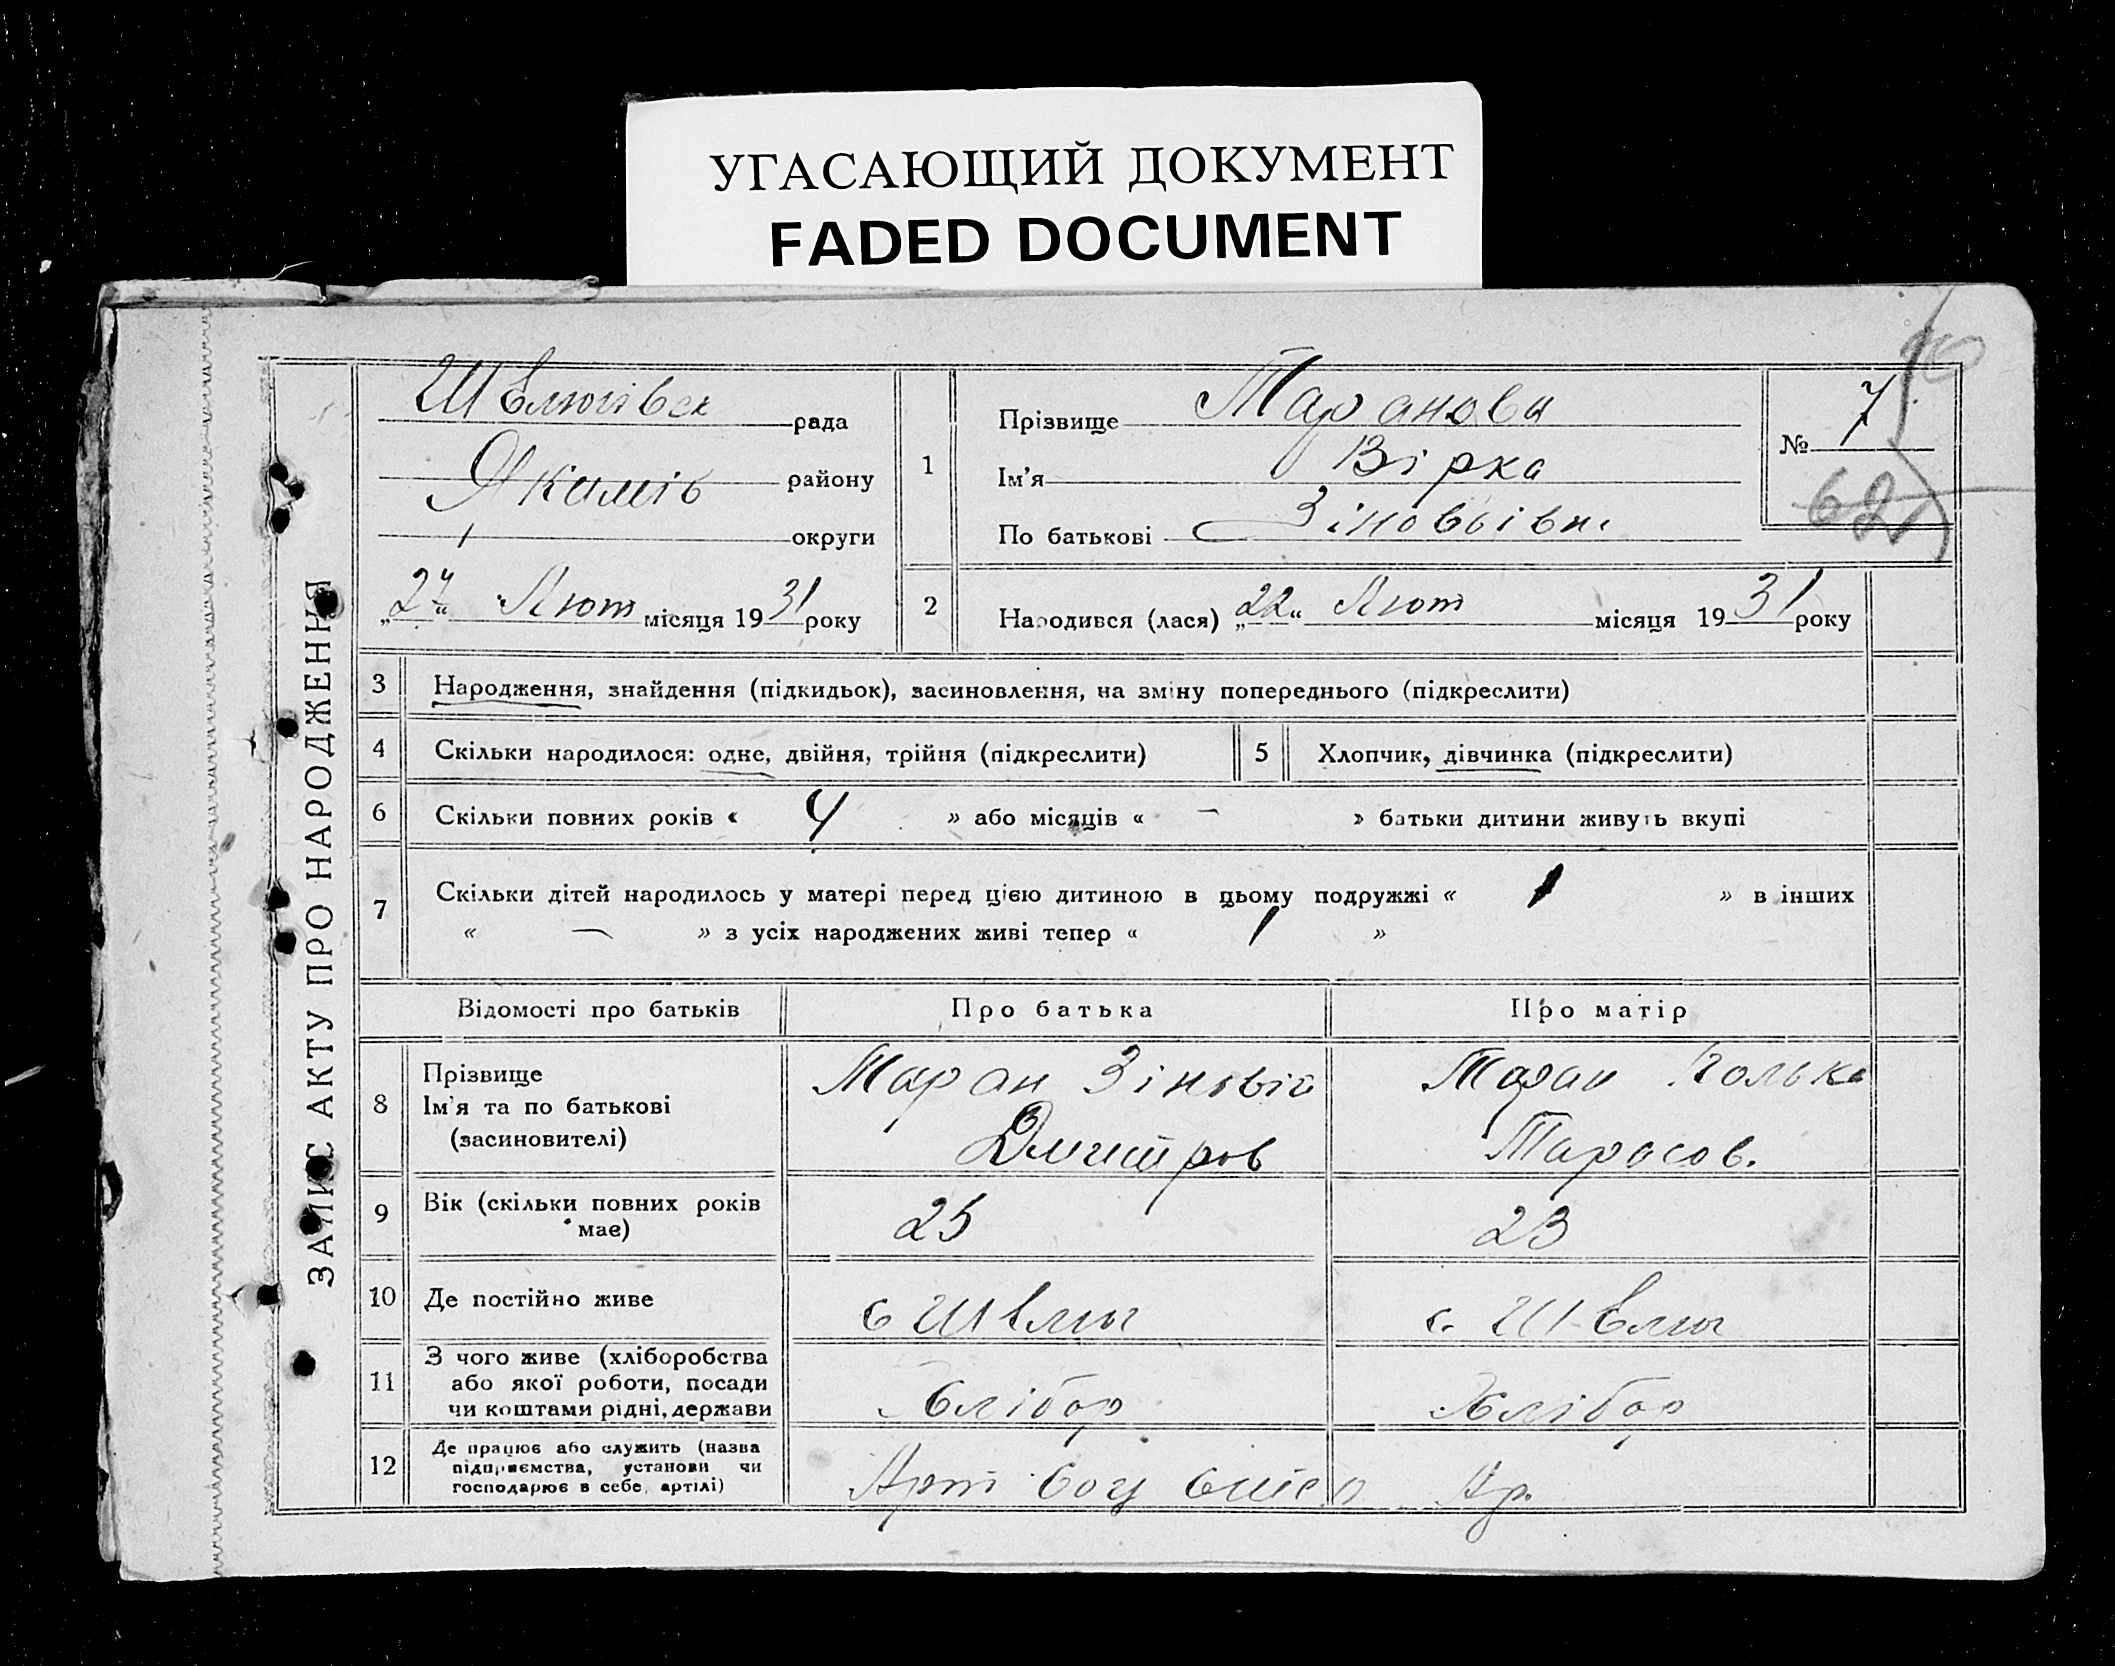 УГАСАЮЩИЙ ДОКУМЕНТ
FADED DOCUMENT
ЗАПИС АКТУ ПРО НАРОДЖЕННЯ
рада
Якимів району
округи
„27“ Лют місяця 1931 року
1
Прізвище Таранова
Ім'я Вірка
По батькові Зіновьівн.
№ 7
62
2
Народився (лася) „22“ Лют місяця 1931 року
3 Народження, знайдення (підкидьок), засиновлення, на зміну попереднього (підкреслити)
4 Скільки народилося: одне, двійня, трійня (підкреслити) 5 Хлопчик, дівчинка (підкреслити)
6 Скільки повних років « 4 » або місяців « — » батьки дитини живуть вкупі
7 Скільки дітей народилось у матері перед цією дитиною в цьому подружжі « 1 » в інших
« — » з усіх народжених живі тепер « 1 »
Відомості про батьків Про батька Про матір
8
Прізвище
Ім'я та по батькові
(засиновителі)
Таран Зіновій
Дмитров
Таран
Тарасов.
9
Вік (скільки повних років
має)
25
23
10 Де постійно живе
с
с.
11
З чого живе (хліборобства
або якої роботи, посади
чи коштами рідні, держави
Хлібор
Хлібор
12
Де працює або служить (назва
підприємства, установи чи
господарює в себе, артілі)
Арт
Ар.